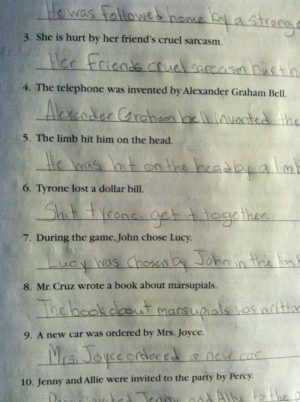 He was followed home by a strange
3. She is hurt by her friend's cruel sarcasm.
Her friends cruel sarcasm hurt h
4. The telephone was invented by Alexander Graham Bell.
Alexander Graham bell invented the
5. The limb hit him on the head.
He was hit on the head by a limb
6. Tyrone lost a dollar bill.
Shit tyrone. get it together.
7. During the game, John chose Lucy.
Lucy was chosen by John in the
8. Mr. Cruz wrote a book about marsupials.
The book about marsupials was written
9. A new car was ordered by Mrs. Joyce.
Mrs. Joyce ordered a new car
10. Jenny and Allie were invited to the party by Percy.
Jenny and Ally to the p